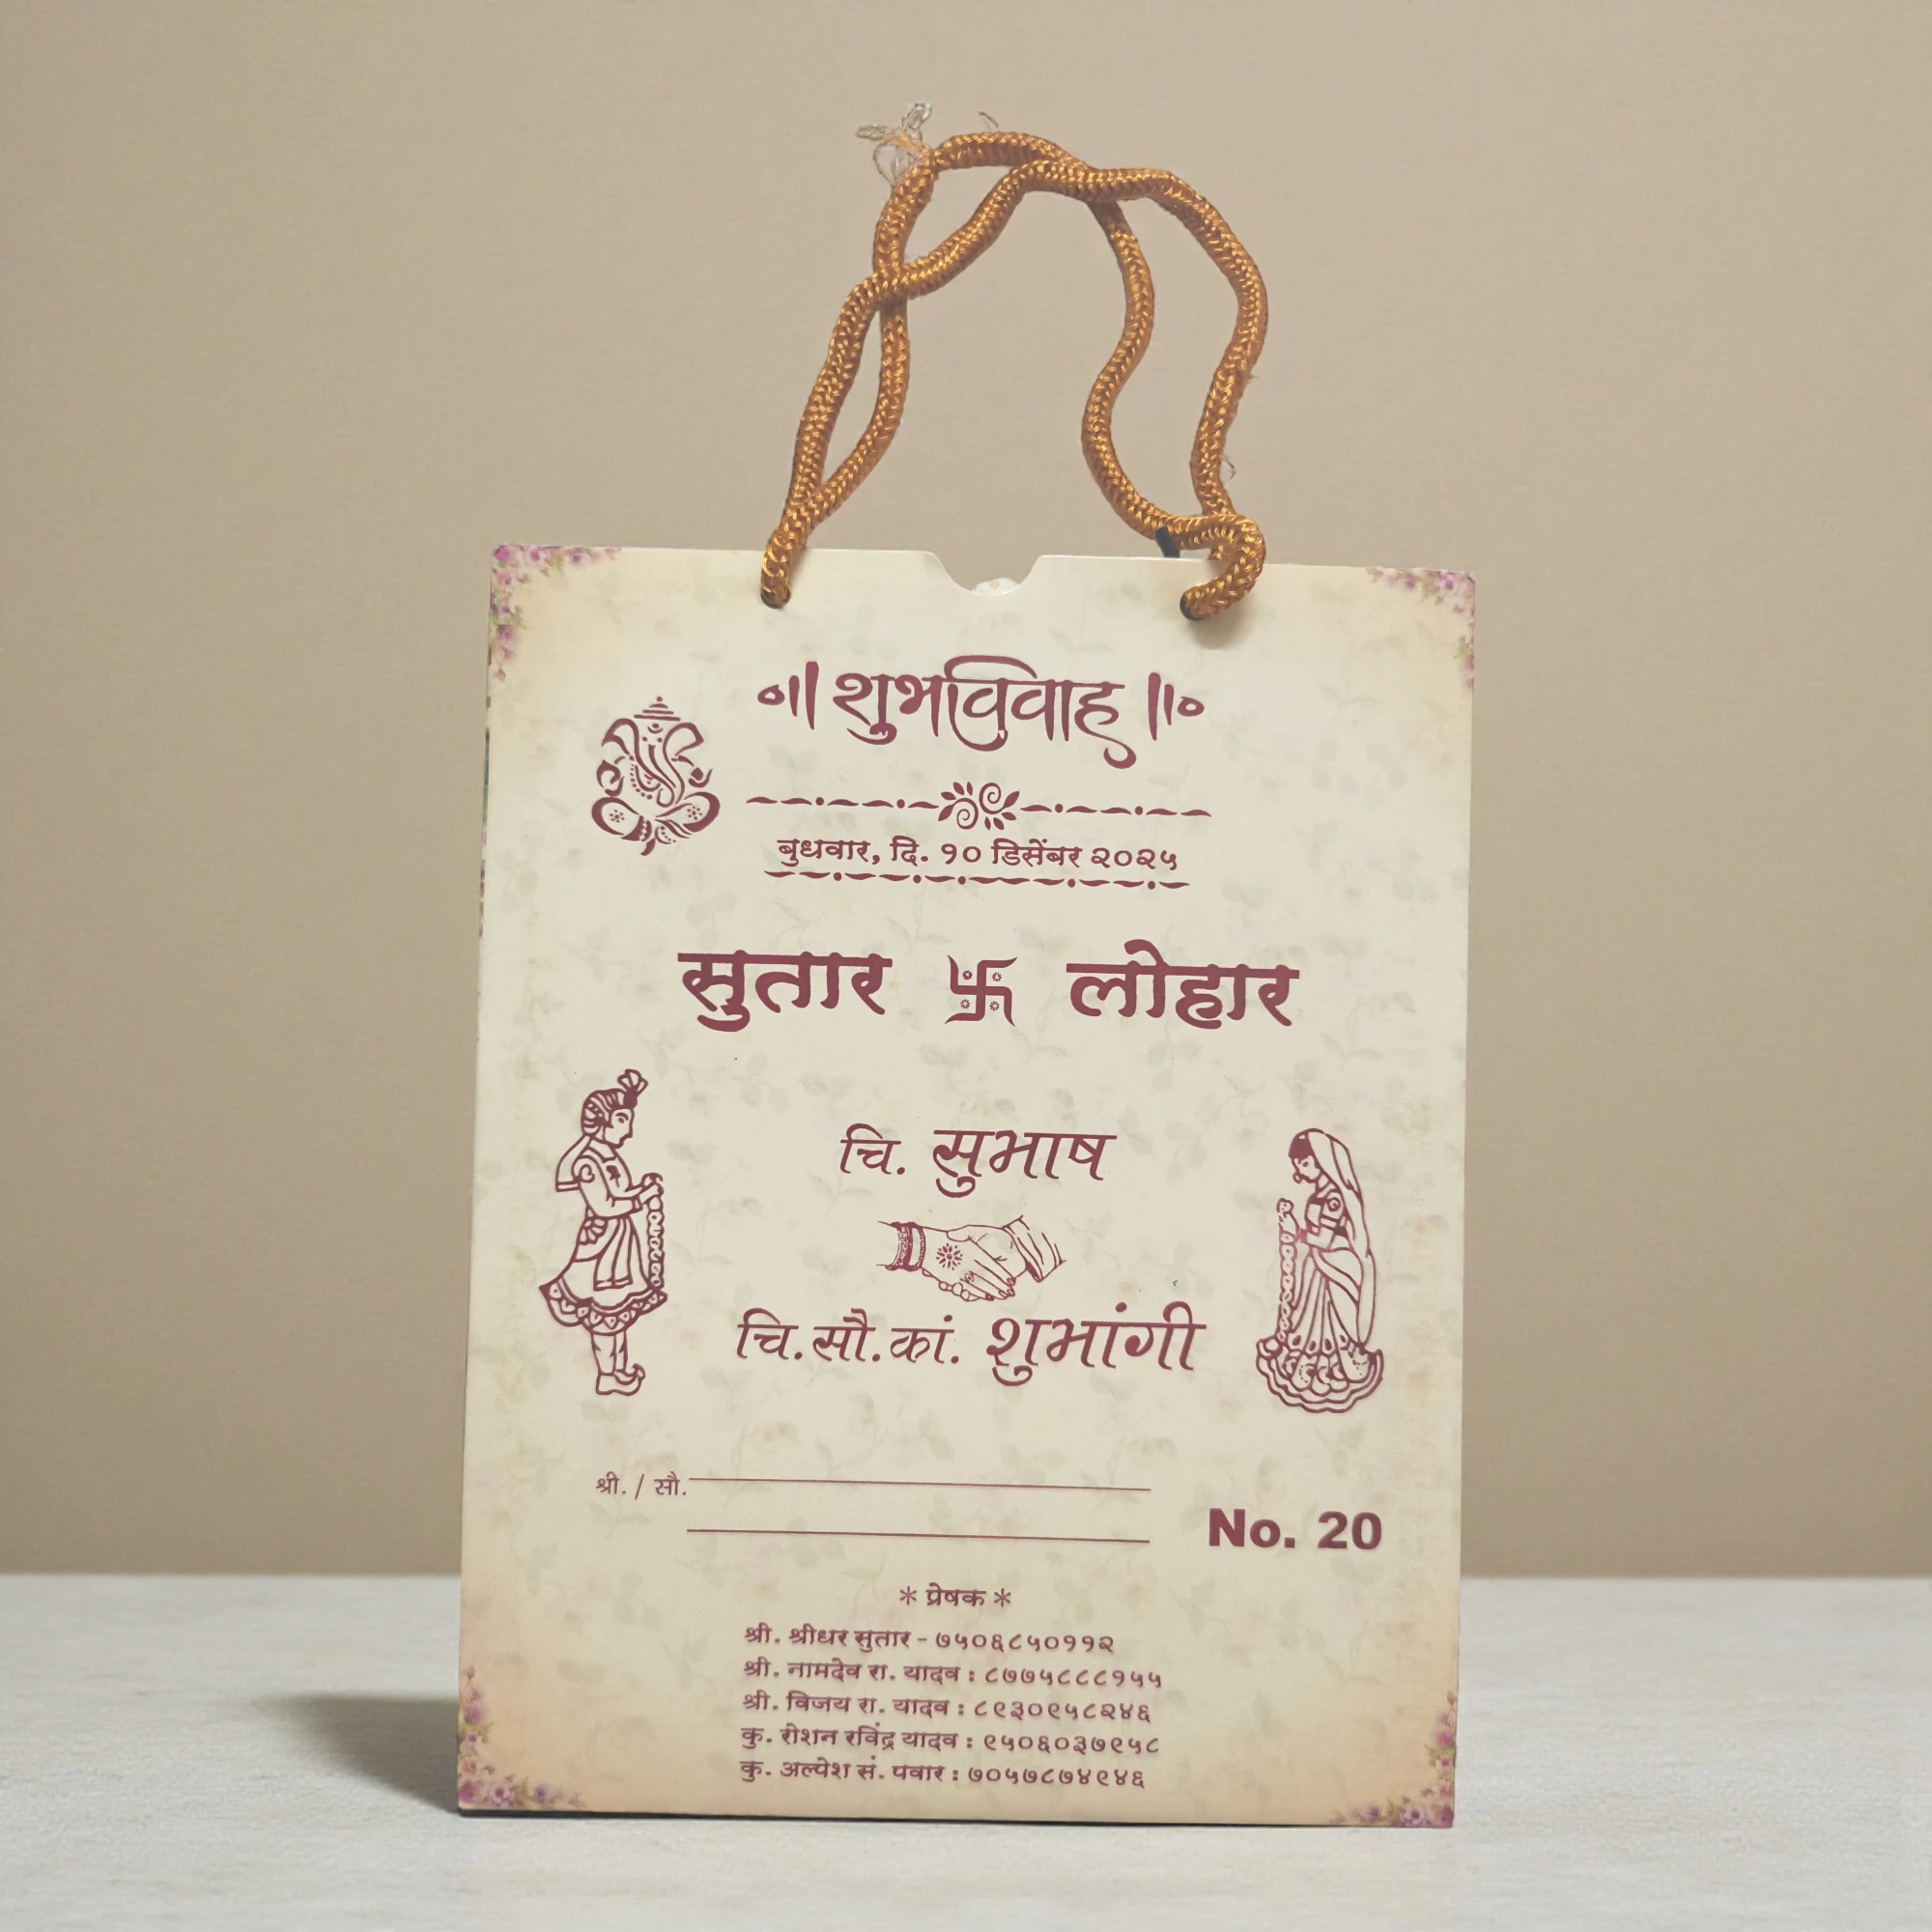 ॥ शुभविवाह ॥
बुधवार, दि. १० डिसेंबर २०२५
सुतार 卐 लोहार
चि. सुभाष
चि.सौ.कां. शुभांगी
श्री. / सौ.
No. 20
* प्रेषक *
श्री. श्रीधर सुतार - ७५०६८५०११२
श्री. नामदेव रा. यादव : ८७७५८८८१५५
श्री. विजय रा. यादव : ८९३०९५८२४६
कु. रोशन रविंद्र यादव : ९५०६०३७९५८
कु. अल्पेश सं. पवार : ७०५७८७४९४६